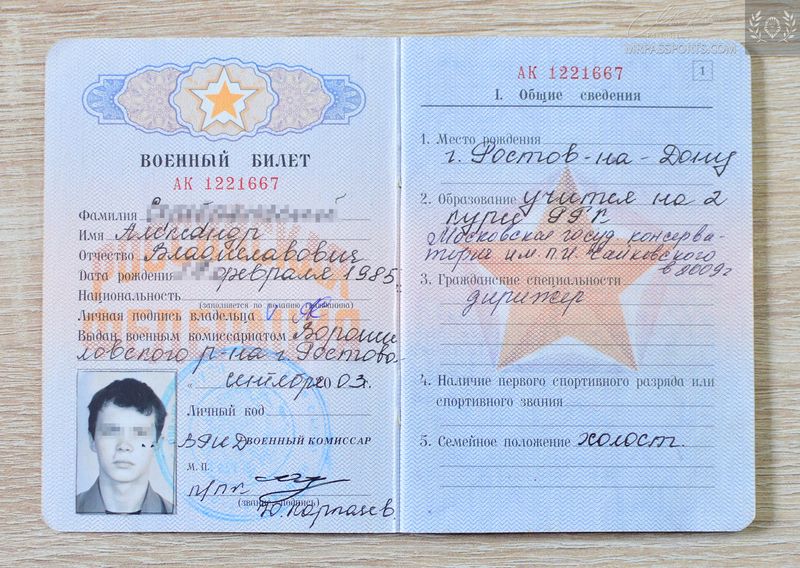 MRPASSPORTS.COM
ВОЕННЫЙ БИЛЕТ
АК 1221667
Фамилия
Имя Александр
Отчество Владиславович
Дата рождения февраля 1985
Национальность
(заполняется по желанию гражданина)
Личная подпись владельца
Выдан военным комиссариатом Вороши
ловского р-на г. Ростова
« сентября 2003г.
Личный код
ВРИД ВОЕННЫЙ КОМИССАР
М. П.
п/пк
(звание, подпись)
АК 1221667
1
I. Общие сведения
1. Место рождения
г. Ростов-на-Дону
2. Образование учится на 2
курсе
Московская госуд консерва-
тория им. П.И. Чайковского
в 2009г
3. Гражданские специальности
дирижер
4. Наличие первого спортивного разряда или
спортивного звания
5. Семейное положение холост.